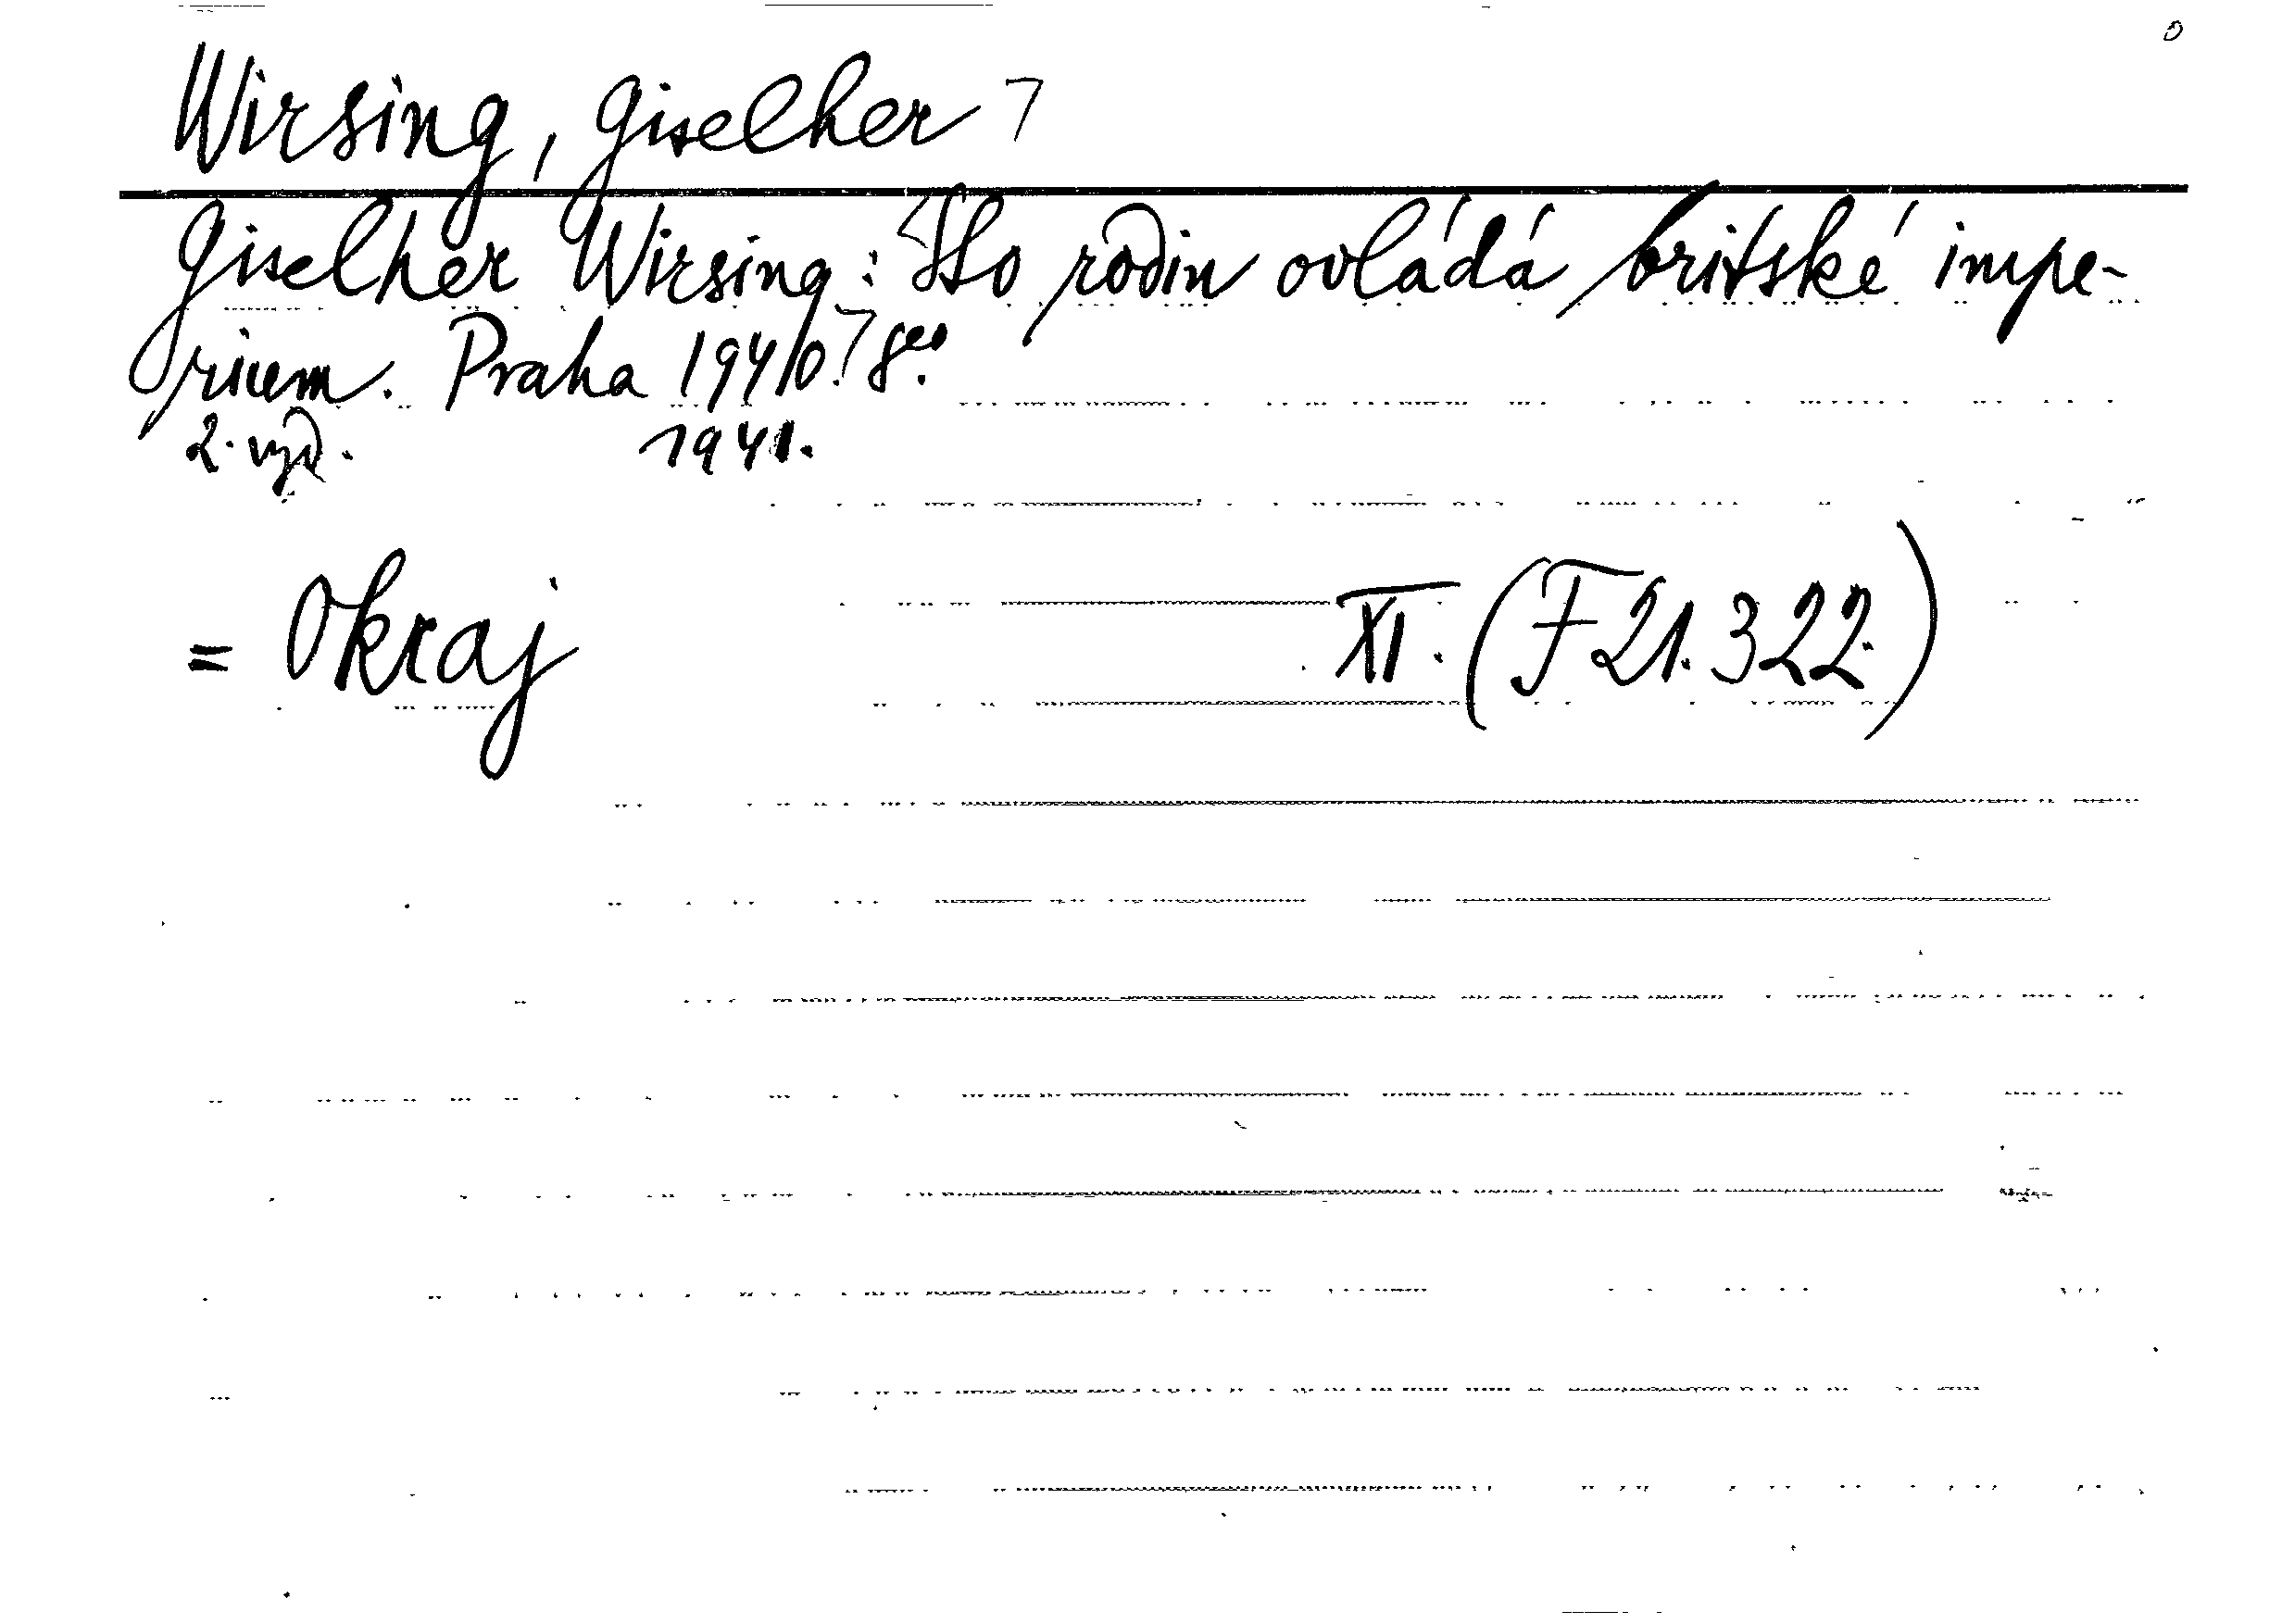 Wirsing, Giselher
Giselher Wirsing: Sto rodin ovládá britské impe-
rium. Praha 1940. 8°.
2. vyd. 1941.
= Okraj XI. (F 21.322.)